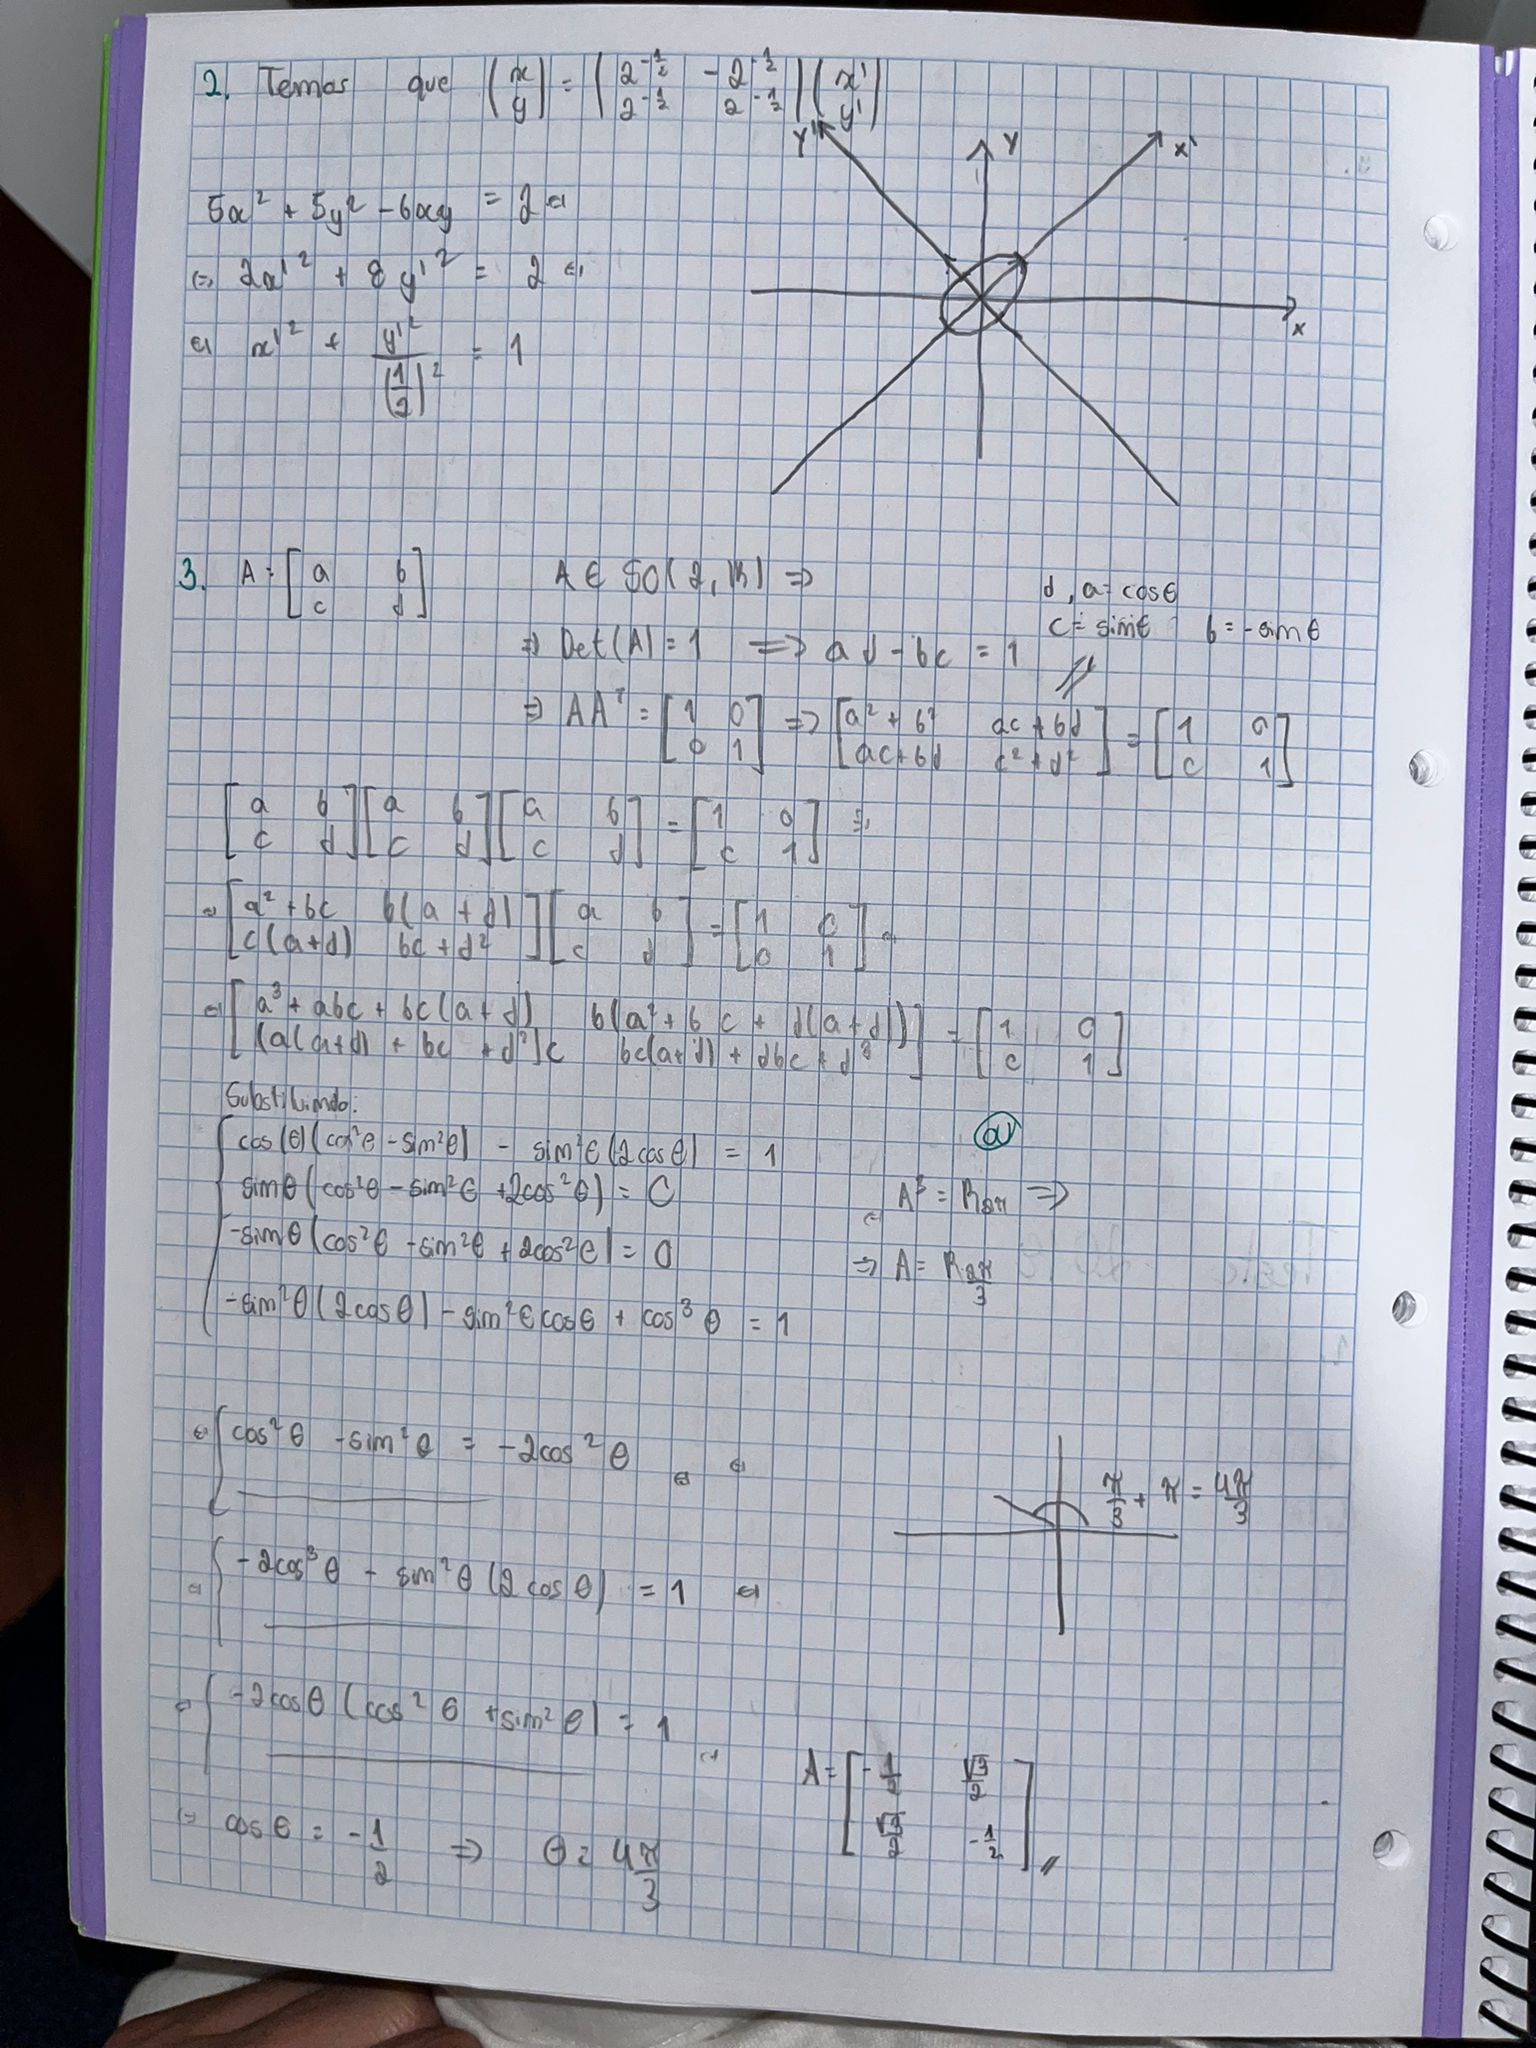 2. Temos que (x y) = (2^{-1/2} -2^{-1/2} 2^{-1/2} 2^{-1/2})(x' y')
Y' Y x'
5x² + 5y² - 6xy = 2 ⇔
⇔ 2x'² + 8y'² = 2 ⇔
x
⇔ x'² + y'²/(1/2)² = 1
3. A = [a b; c d] A ∈ SO(2, IR) ⇒
d, a = cosθ
c = sinθ b = -sinθ
⇒ Det(A) = 1 ⇒ ad - bc = 1
⇒ AAᵀ = [1 0; 0 1] ⇒ [a² + b² ac + bd; ac + bd c² + d²] = [1 0; 0 1]
[a b; c d][a b; c d][a b; c d] = [1 0; 0 1] ⇔
⇔ [a² + bc b(a + d); c(a+d) bc + d²][a b; c d] = [1 0; 0 1] ⇔
⇔ [a³ + abc + bc(a+d) b(a² + bc + d(a+d)); (a(a+d) + bc + d²)c bc(a+d) + dbc + d³] = [1 0; 0 1]
Substituindo:
cos(θ)(cos²θ - sin²θ) - sin²θ(2cosθ) = 1
sinθ(cos²θ - sin²θ + 2cos²θ) = 0
-sinθ(cos²θ - sin²θ + 2cos²θ) = 0
-sin²θ(2cosθ) - sin²θcosθ + cos³θ = 1
ou
A³ = R2π ⇒
⇒ A = R2π/3
⇔ { cos²θ - sin²θ = -2cos²θ ⇔ ⇔
π/3 + π = 4π/3
⇔ { -2cos³θ - sin²θ(2cosθ) = 1 ⇔
⇔ { -2cosθ(cos²θ + sin²θ) = 1 ⇔
⇔ cosθ = -1/2 ⇒ θ = 4π/3
A = [-1/2 √3/2; √3/2 -1/2] //